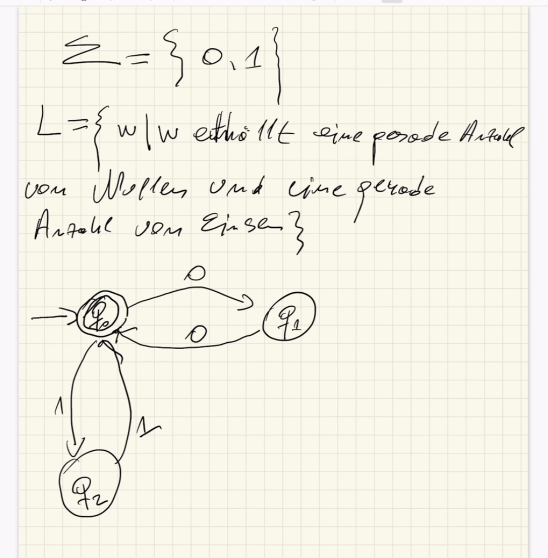 Σ = { 0, 1 }
L = { w | w enthällt eine gerade Anzahl
von Nullen und eine gerade
Anzahl von Einsen }
0
q0
q1
0
1
1
q2